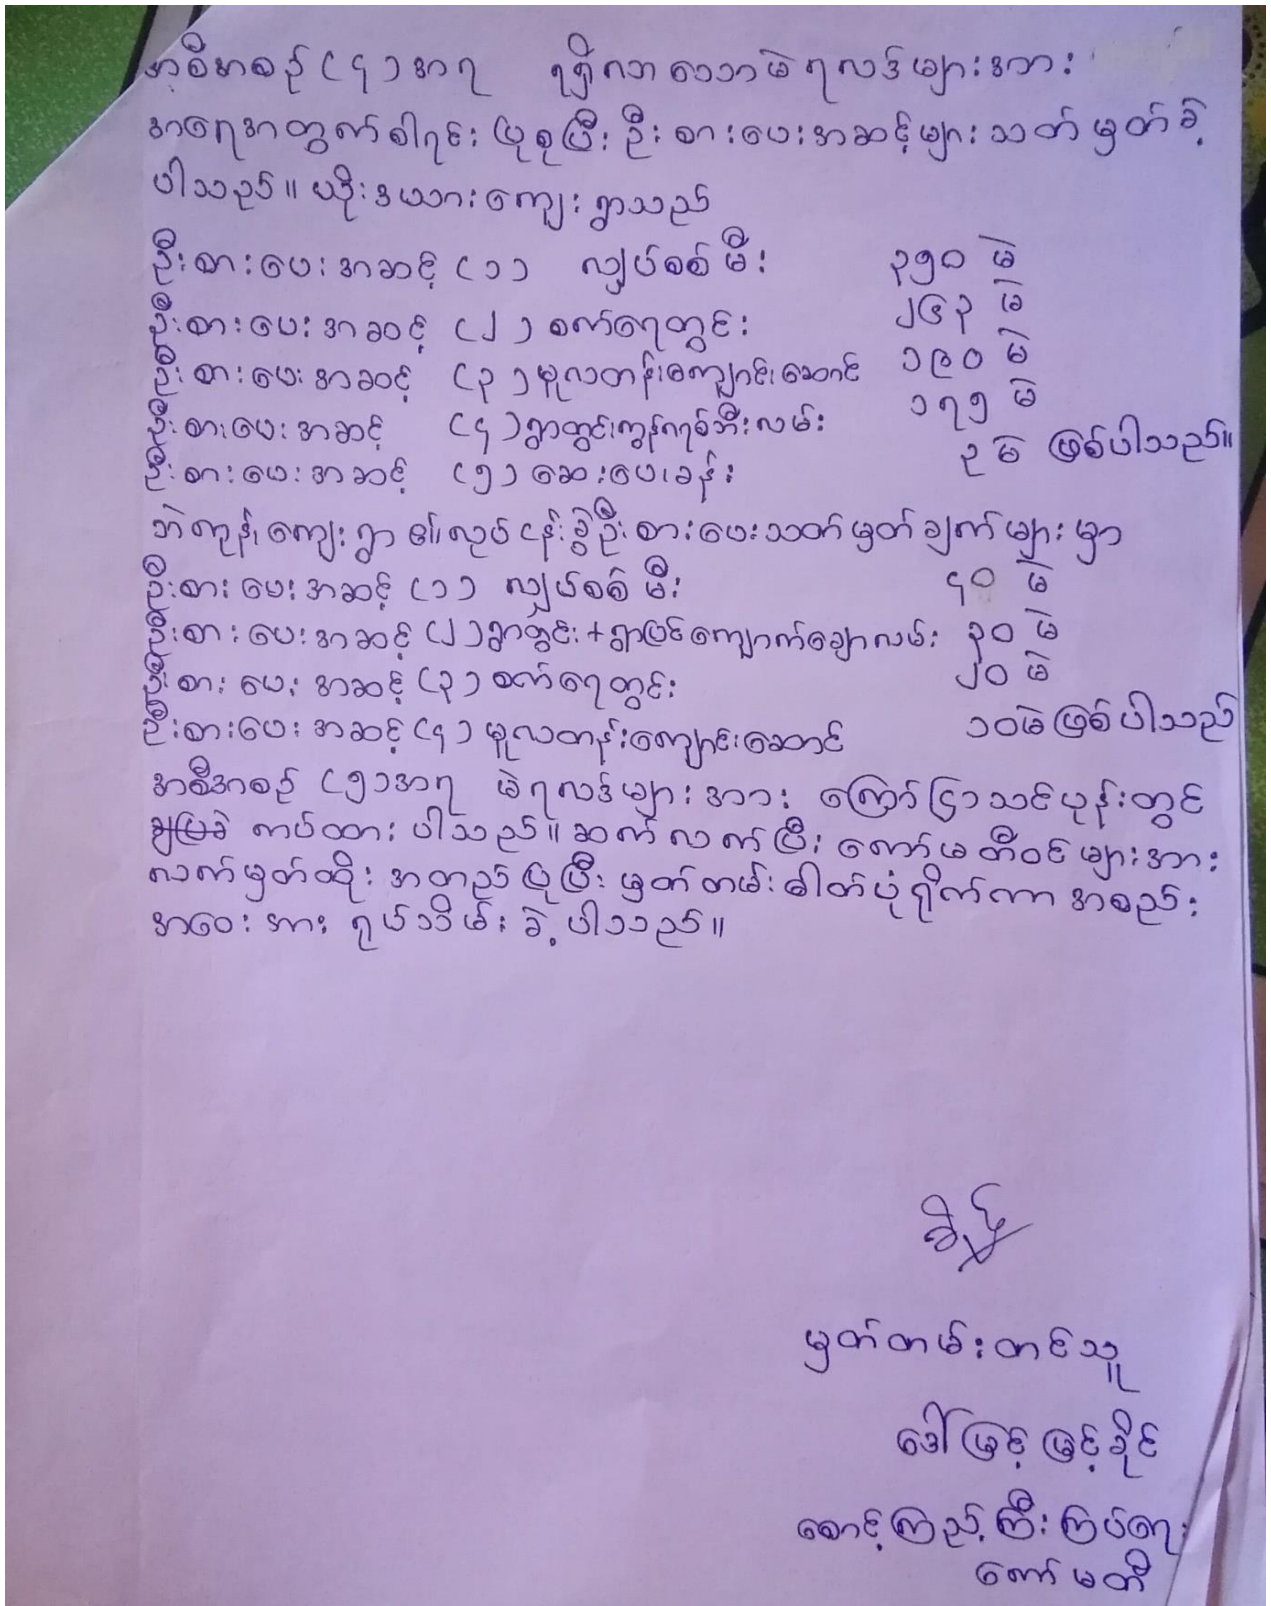 အစီအစဉ် (၄) အရ ရရှိလာသောမဲရလဒ်များအား
အရေအတွက်စာရင်းပြုစုပြီး ဦးစားပေးအဆင့်များ သတ်မှတ်ခဲ့
ပါသည်။ ယိုးဒယားကျေးရွာသည်
ဦးစားပေးအဆင့် (၁) လျှပ်စစ်မီး ၃၅၀ မဲ
ဦးစားပေးအဆင့် (၂) စက်ရေတွင်း ၂၄၃ မဲ
ဦးစားပေးအဆင့် (၃) မူလတန်းကျောင်းဆောင် ၁၉၀ မဲ
ဦးစားပေးအဆင့် (၄) ရွာတွင်းကွန်ကရစ်ဘီးလမ်း ၁၇၅ မဲ
ဦးစားပေးအဆင့် (၅) ဆေးပေးခန်း ၃ မဲ ဖြစ်ပါသည်။
ဘဲကုန်းကျေးရွာ ၏လုပ်ငန်းခွဲဦးစားပေးသတ်မှတ်ချက်များမှာ
ဦးစားပေးအဆင့် (၁) လျှပ်စစ်မီး ၄၀ မဲ
ဦးစားပေးအဆင့် (၂) ရွာတွင်း+ရွာပြင်ကျောက်ချောလမ်း ၃၀ မဲ
ဦးစားပေးအဆင့် (၃) စက်ရေတွင်း ၂၀ မဲ
ဦးစားပေးအဆင့် (၄) မူလတန်းကျောင်းဆောင် ၁၀မဲဖြစ်ပါသည်
အစီအစဉ် (၅) အရ မဲရလဒ်များအား ကြော်ငြာသင်ပုန်းတွင်
ချပြခဲ ကပ်ထားပါသည်။ ဆက်လက်ပြီး ကော်မတီဝင်များအား
လက်မှတ်ထိုး အတည်ပြုပြီး မှတ်တမ်းဓါတ်ပုံရိုက်ကာ အစည်း
အဝေးအား ရုပ်သိမ်းခဲ့ပါသည်။
မှတ်တမ်းတင်သူ
ဒေါ်ဖြင့်ဖြင့်ခိုင်
စောင့်ကြည့်ကြီးကြပ်ရေး
ကော်မတီ